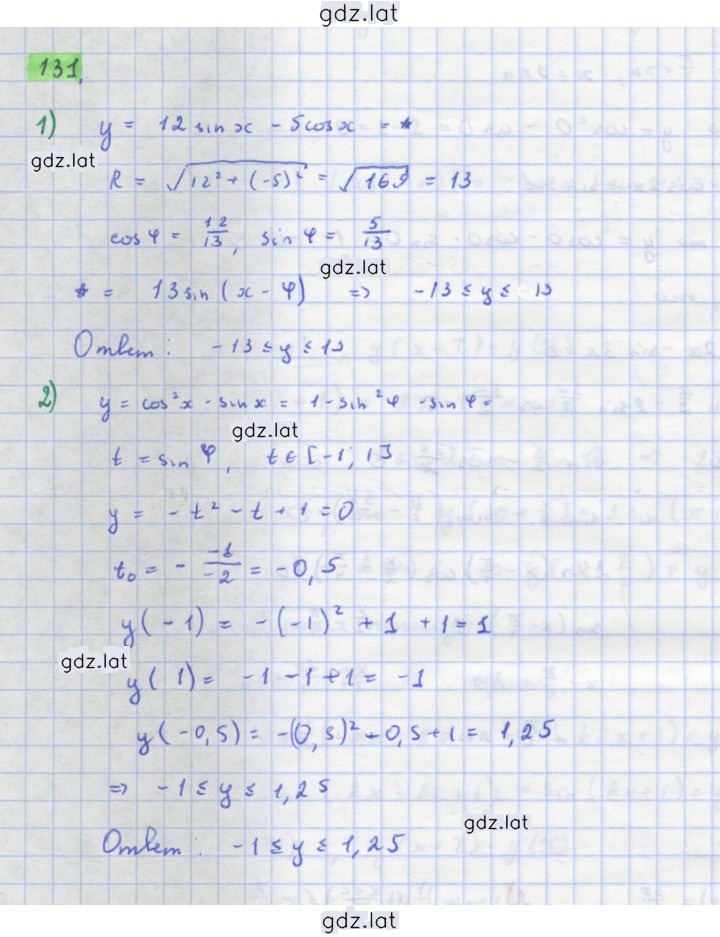 gdz.lat
131.
1) y = 12 sin x - 5 cos x = *
gdz.lat
R = √12² + (-5)² = √169 = 13
cos φ = 12/13, sin φ = 5/13
gdz.lat
* = 13 sin (x - φ) => -13 ≤ y ≤ 13
Ответ: -13 ≤ y ≤ 13
2) y = cos²x - sin x = 1 - sin²φ - sin φ =
gdz.lat
t = sin φ, t ∈ [-1; 1]
y = -t² - t + 1 = 0
t₀ = - -1/-2 = -0,5
y(-1) = -(-1)² + 1 + 1 = 1
gdz.lat
y(1) = -1 - 1 + 1 = -1
y(-0,5) = -(0,5)² + 0,5 + 1 = 1,25
=> -1 ≤ y ≤ 1,25
gdz.lat
Ответ: -1 ≤ y ≤ 1,25
gdz.lat